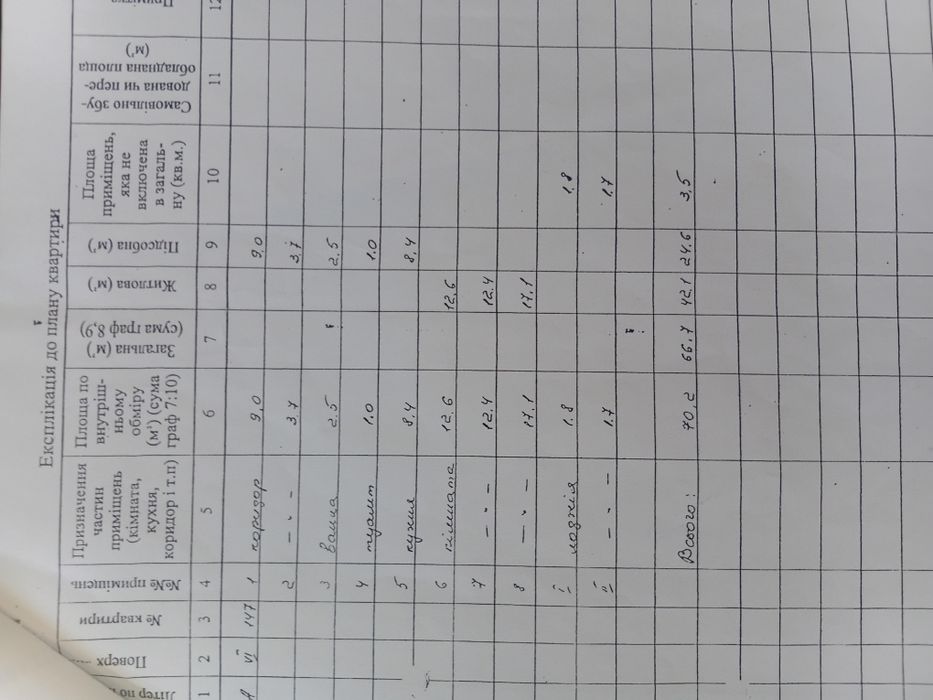 Експлікація до плану квартири
Літер по
Поверх
№ квартири
№№ приміщень
Призначення частин приміщень (кімната, кухня, коридор і т.п)
Площа по внутрішньому обміру (м²) (сума граф 7:10)
Загальна (м²) (сума граф 8,9)
Житлова (м²)
Підсобна (м²)
Площа приміщень, яка не включена в загальну (кв.м.)
Самовільно збудована чи переобладнана площа (м²)
Примітка
1 2 3 4 5 6 7 8 9 10 11 12
А VI 147 1 коридор 9,0 9,0
2 – " – 3,7 3,7
3 ванна 2,5 2,5
4 туалет 1,0 1,0
5 кухня 8,4 8,4
6 кімната 12,6 12,6
7 – " – 12,4 12,4
8 – " – 17,1 17,1
I лоджія 1,8 1,8
II – " – 1,7 1,7
Всього: 70,2 66,7 42,1 24,6 3,5